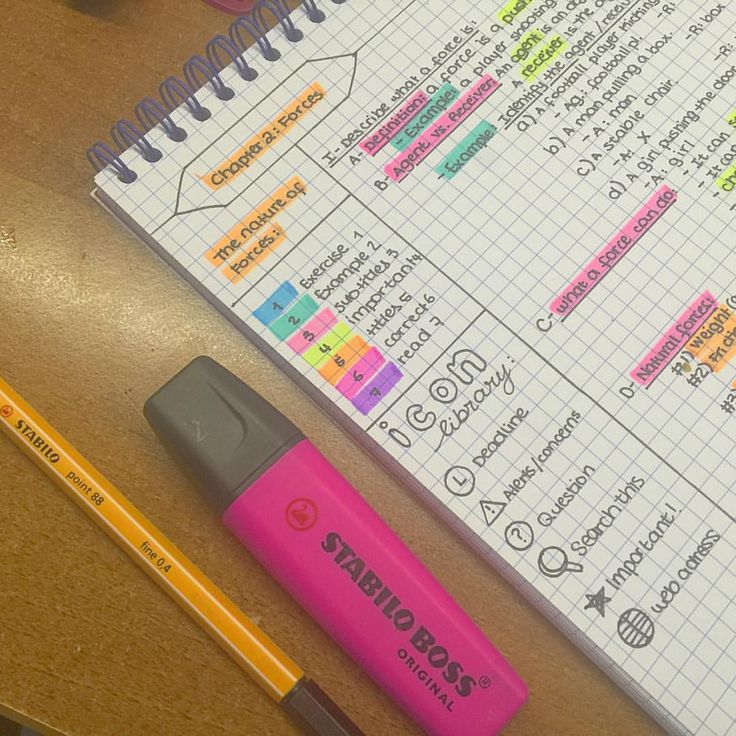 Chapter 2: Forces
The nature of
Forces:
1 Exercise 1
2 Example 2
3 subtitles 3
4 important 4
5 titles 5
6 correct 6
7 read -7
icon
library:
Deadline
Alerts/concerns
? Question
Search this
Important!
web adress
I- Describe what a force is:
A- Definition: a force is a push
- Example: a player shooting
B- Agent vs. Receiver: An agent
receiver is the
- Example: Identify the agent/receiver
a) A football player kicking
- Ag: football pl.
b) A man pulling a box.
- A: man - R: box
c) A stable chair.
- A: X - R:
d) A girl pushing the door
- A: girl
- It can
- It can
C- what a force can do:
D- Natural forces:
#1) weight
#2)
STABILO point 88 fine 0,4
STABILO BOSS®
ORIGINAL